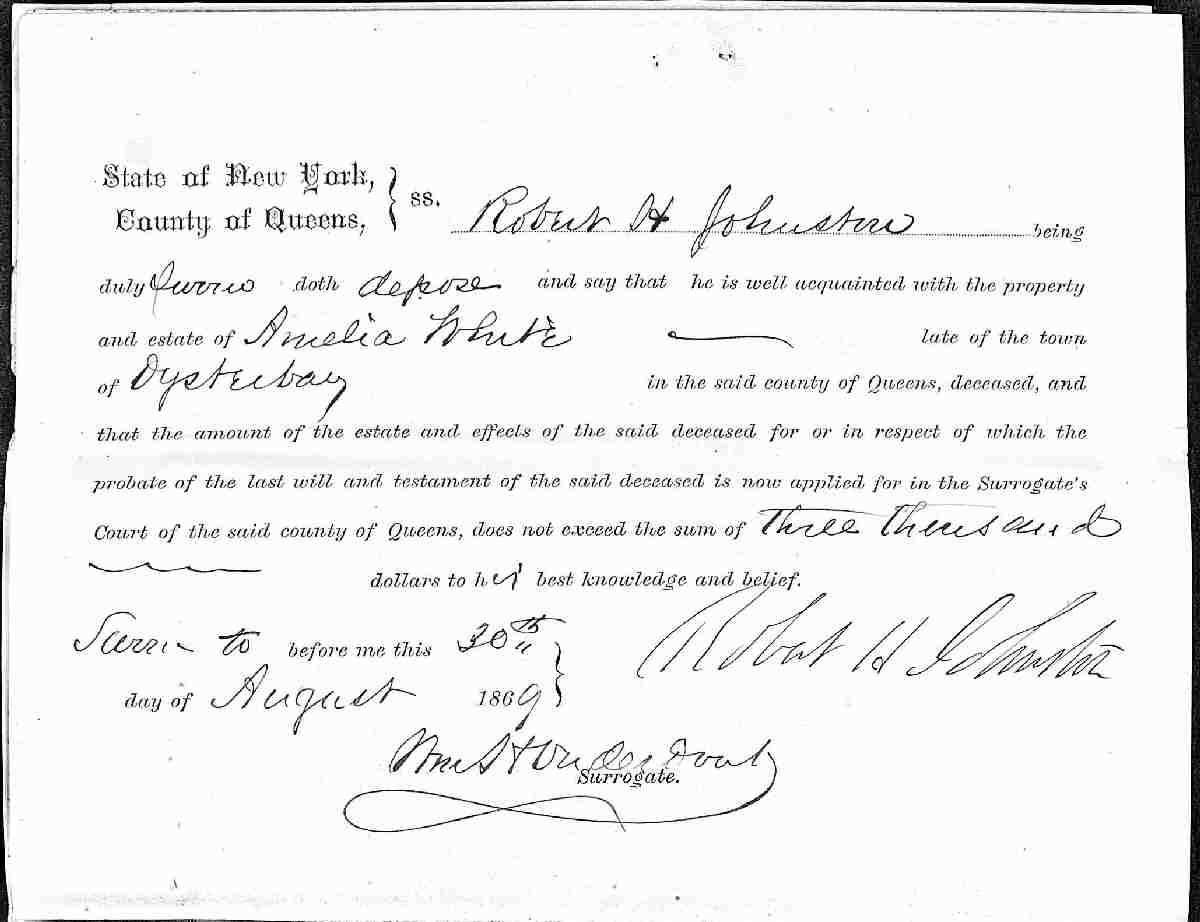 State of New York,
County of Queens, } ss. Robert H Johnston being
duly sworn doth depose and say that he is well acquainted with the property
and estate of Amelia White late of the town
of Oysterbay in the said county of Queens, deceased, and
that the amount of the estate and effects of the said deceased for or in respect of which the
probate of the last will and testament of the said deceased is now applied for in the Surrogate's
Court of the said county of Queens, does not exceed the sum of Three thousand
dollars to his best knowledge and belief.
Sworn to before me this 30th
day of August 1869 } Robert H Johnston
Surrogate.